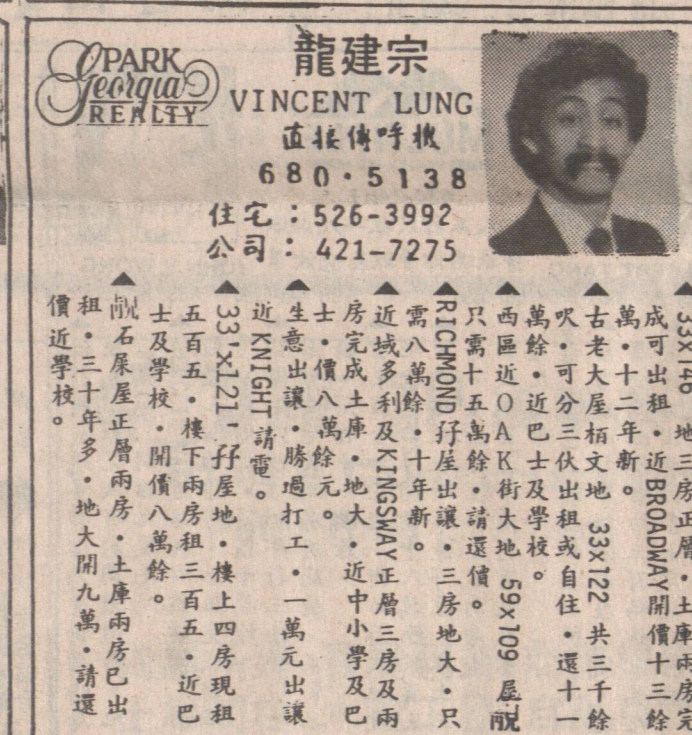 PARK
Georgia
REALTY
龍建宗
VINCENT LUNG
直接傳呼機
680·5138
住宅：526-3992
公司：421-7275
33x146 地三房正層·土庫兩房完
成可出租·近BROADWAY開價十三餘
萬·十二年新。
▲古老大屋栢文地 33x122 共三千餘
呎·可分三伙出租或自住·還十一
萬餘·近巴士及學校。
▲西區近OAK街大地 59x109 屋靚
只需十五萬餘·請還價。
▲RICHMOND孖屋出讓·三房地大·只
需八萬餘·十年新。
▲近域多利及KINGSWAY正層三房及兩
房完成土庫·地大·近中小學及巴
士·價八萬餘元。
▲生意出讓·勝過打工·一萬元出讓
近 KNIGHT 請電。
▲33'x121'孖屋地·樓上四房現租
五百五·樓下兩房租三百五·近巴
士及學校·開價八萬餘。
▲靚石屎屋正層兩房·土庫兩房已出
租·三十年多·地大開九萬·請還
價近學校。